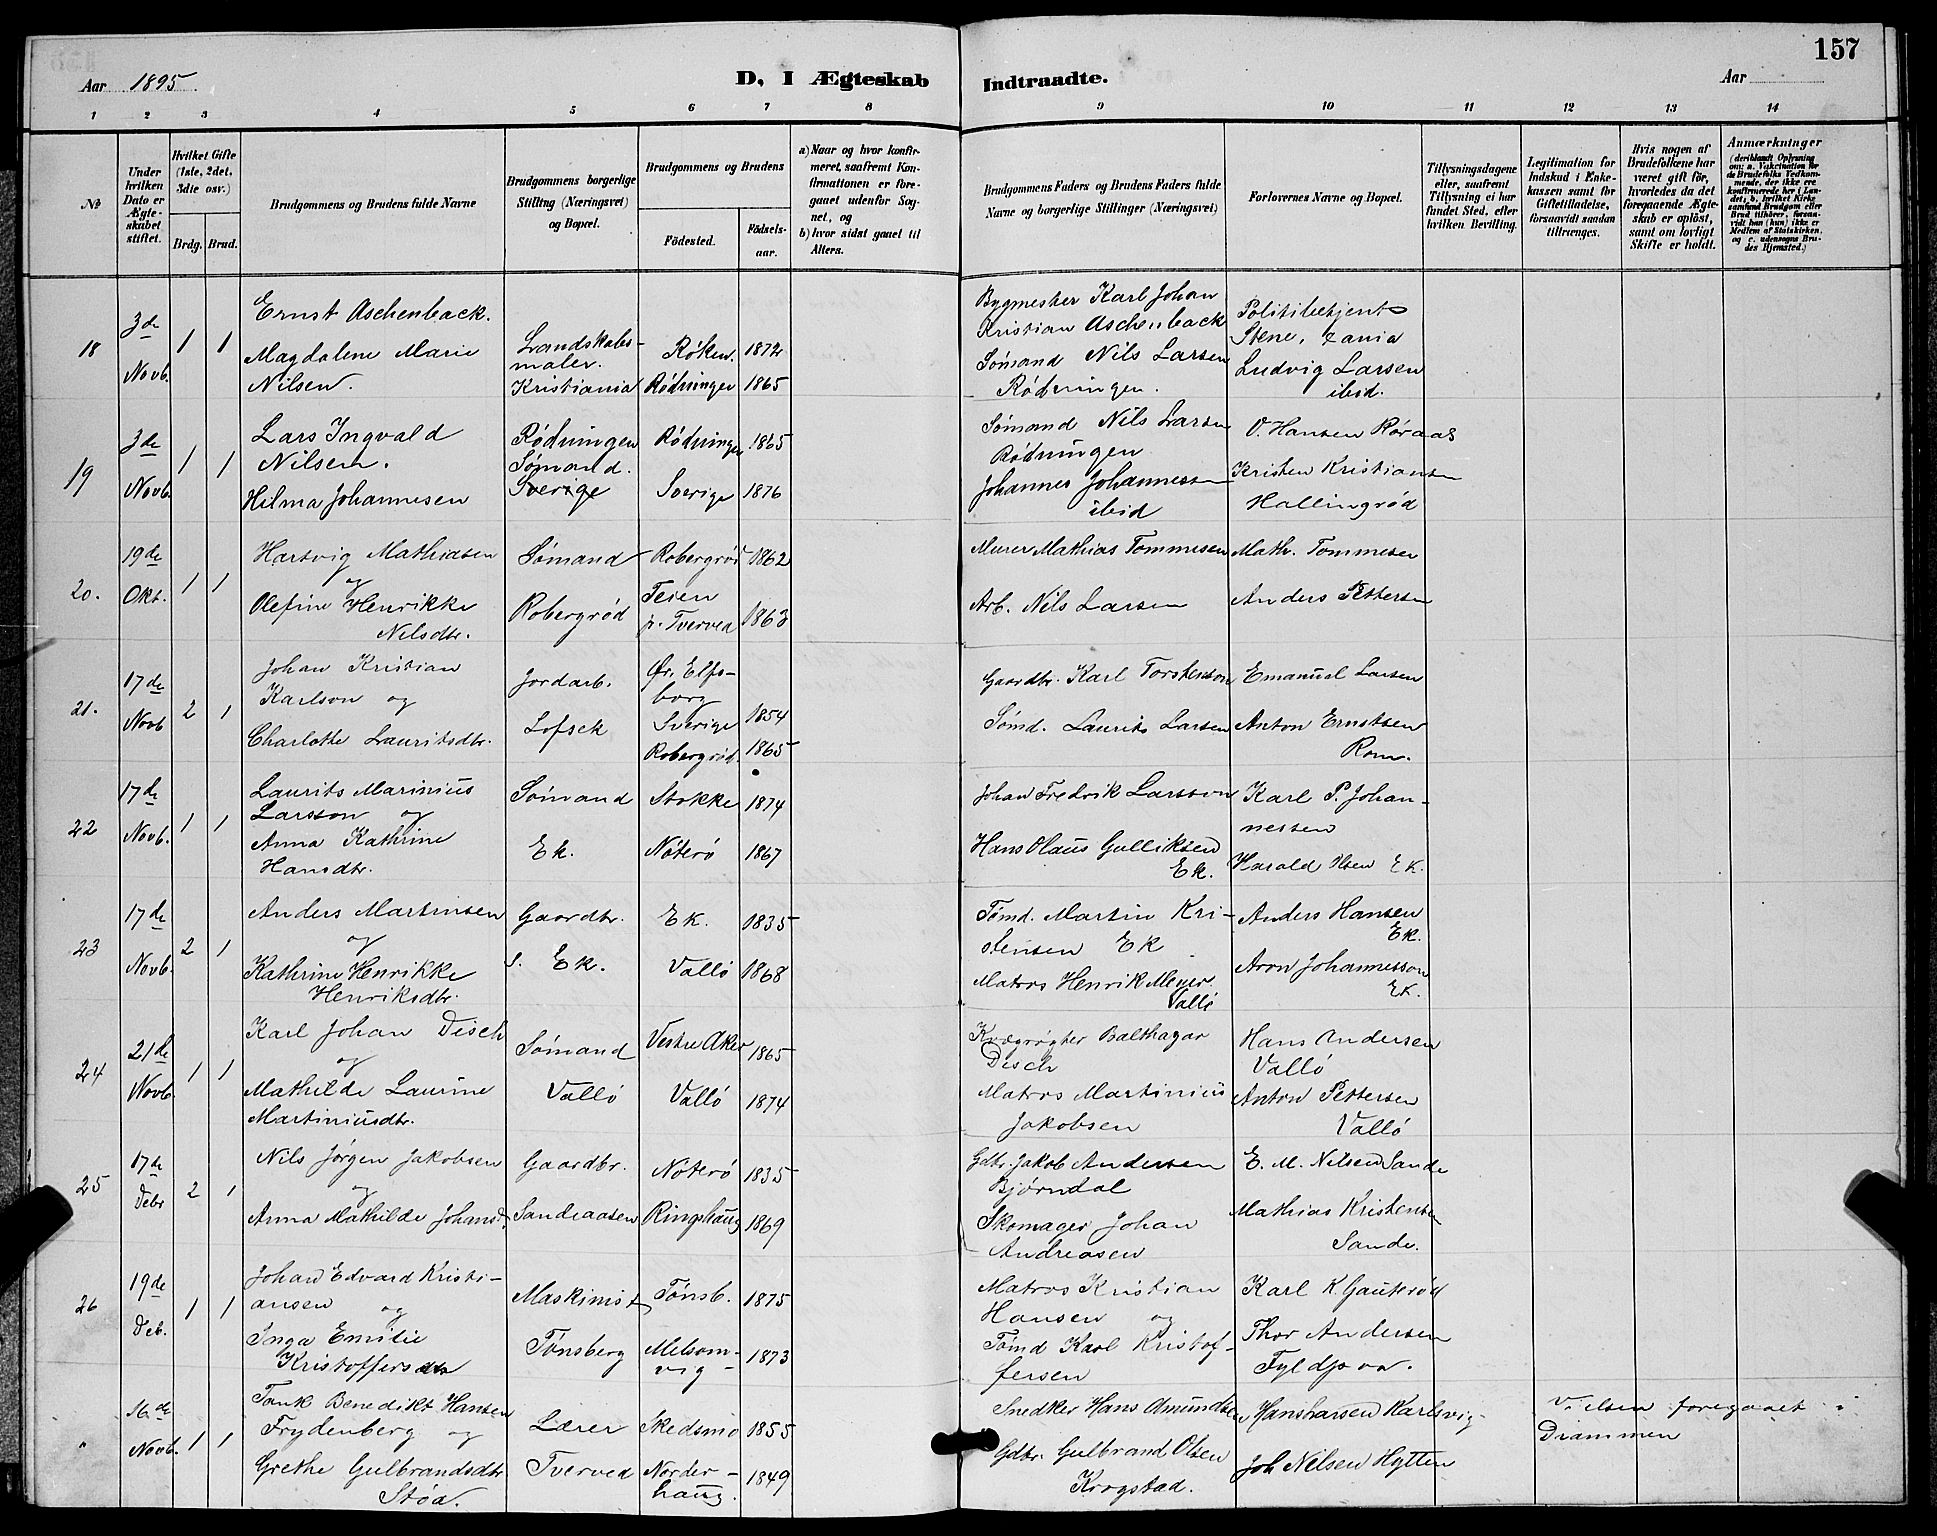 157
Aar 1895.
D. I Ægteskab Indtraadte.
Aar
1 2 3 4 5 6 7 8 9 10 11 12 13 14
No
Under hvilken Dato er Ægteskabet stiftet.
Hvilket Gifte (1ste, 2det, 3die osv.)
Brdg. Brud.
Brudgommens og Brudens fulde Navne
Brudgommens borgerlige Stilling (Næringsvei) og Bopæl.
Brudgommens og Brudens
Födested. Födsels-aar.
a) Naar og hvor konfirmeret, saafremt Konfirmationen er foregaaet udenfor Sognet, og
b) hvor sidst gaaet til Alters.
Brudgommens Faders og Brudens Faders fulde Navne og borgerlige Stillinger (Næringsvei)
Forlovernes Navne og Bopæl.
Tillysningsdagene eller, saafremt Tillysning ei har fundet Sted, efter hvilken Bevilling.
Legitimation for Indskud i Enkekassen samt for Giftetilladelse, forsaavidt saadan tiltrænges.
Hvis nogen af Brudefolkene har været gift før, hvorledes da det foregaaende Ægteskab er opløst, samt om lovligt Skifte er holdt.
Anmærkninger
(deriblandt Oplysning om: a. Vakcination for de Brudefolks Vedkommende, der ikke ere konfirmerede her i Landet; b. hvilket Kirkesamfund Brudgom eller Brud tilhører, forsaavidt han (hun) ikke er Medlem af Statskirken, og c. udensogns Brudes Hjemsted.)
18
3de Novb.
1 1
Ernst Aschenback.
Magdalene Marie
Nilsen.
Landskabs-
maler.
Kristiania
Röken. 1872
Rødningen 1865
Bygmester Karl Johan
Kristian Aschenback
Sømand Nils Larsen
Rødningen.
Politibetjent
Stene,
Ludvig Larsen
ibid.
19
3de Novb.
1 1
Lars Ingvald
Nilsen.
Hilma Johannesen
Rødningen
Sømand.
Sverige
Rødningen 1865
Sverige 1876
Sømand Nils Larsen
Rødningen
Johannes Johannessen
ibid
O. Hansen Røraas
Kristen Kristiansen
Hallingrød
20.
19de Okt.
1 1
Hartvig Mathiasen
og
Olefine Henrikke
Nilsdtr.
Sømand
Robergrød
Robergrød 1862
Teien
p. Tverved 1863
Murer Mathias Tommesen
Arb. Nils Larsen
Math. Tommesen
Anders Pettersen
21.
17de Novb
2 1
Johan Kristian
Karlson og
Charlotte Lauritsdtr.
Jordarb.
Lofsek
Ør. Elfs-
borg
Sverige 1854
Robergrød. 1865
Gaardbr. Karl Torstenson
Sømd. Laurits Larsen
Emanuel Larsen
Anton Ernstsen
Rom.
22
17de Novb.
1 1
Laurits Marinius
Larsson og
Anna Kathrine
Hansdtr.
Sømand
Ek.
Stokke 1874
Nøterø 1867
Johan Fredrik Larsson
Hans Olaus Gulliksen
Ek.
Karl P. Johan-
nessen
Harald Olsen Ek.
23
17de Novb.
2 1
Anders Martinsen
og
Kathrine Henrikke
Henriksdtr.
Gaardbr.
s. Ek.
Ek. 1835
Vallö 1868
Tømd. Martin Kri-
stensen Ek
Matros Henrik Meyer.
Vallö
Anders Hansen
Ek.
Aron Johannesson
Ek.
24
21de Novb.
1 1
Karl Johan Disch
og
Mathilde Laurine
Martiniusdtr.
Sømand
Vallö
Vestre Aker 1865
Vallö 1874
Kvægrøgter Balthazar
Disch
Matros Martinius
Jakobsen
Hans Andersen
Vallö
Anton Pettersen
Vallö
25
17de Debr
2 1
Nils Jørgen Jakobsen
og
Anna Mathilde Johansd.
Gaardbr.
Sandeaasen
Nøterø 1835
Ringshaug 1869
Gdbr. Jakob Andersen
Bjørndal
Skomager Johan
Andreasen
E. M. Nilsen Sande
Mathias Kristensen
Sande.
26
19de Deb.
1 1
Johan Edvard Kristi-
ansen og
Inga Emilie
Kristoffersdtr
Maskinist
Tønsberg
Tønsb. 1875
Melsom-
vig- 1873
Matros Kristian
Hansen og
Tømd Karl Kristof-
fersen
Karl K Gauterød
Thor Andersen
Fyldpaa.
"
16de Novb.
1 1
Tank Benedikt Hansen
Frydenberg og
Grethe Gulbrandsdtr.
Støa.
Lærer
Tverved
Skedsmo 1855
Norder-
haug. 1849
Snedker Hans Amundsen
Gdbr. Gulbrand Olsen
Krogstad.
Hans Larsen Karlsvig-
Joh Nilsen Hytten
Vielsen foregaaet i
Drammen